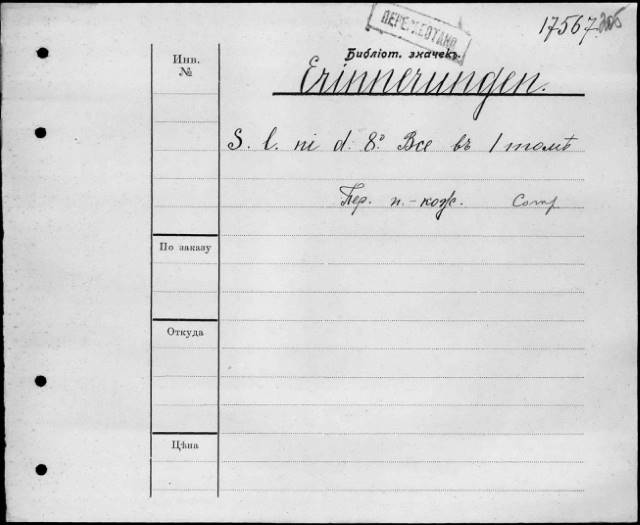 17567
Библіот. значекъ.
Инв. №
Erinnerungen.
S. l. ni d. 8º. Все въ 1 томѣ
Пер. п.-кож.
По заказу
Откуда
Цѣна